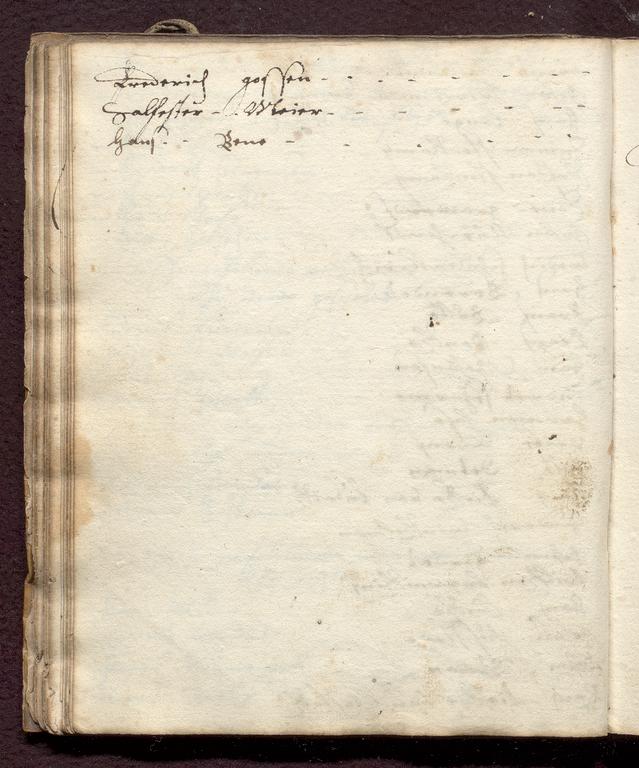 Frederich gossen - - - - - - -
Salfester - Meier - - - - - - -
Hans - - Bene - - - - - -